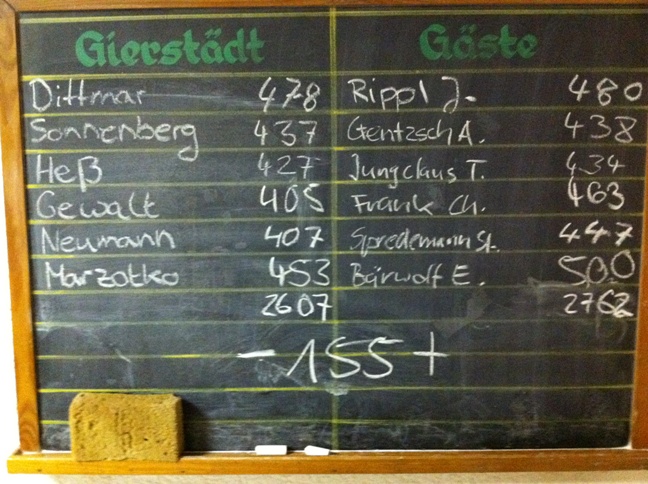 Gierstädt Gäste
Dittmar 478 Rippl J. 480
Sonnenberg 437 Gentzsch A. 438
Heß 427 Jungclaus T. 434
Gewalt 405 Frank Ch. 463
Neumann 407 Spredemann St. 447
Marzotko 453 Bärwolf E. 500
2607 2762
- 155 +